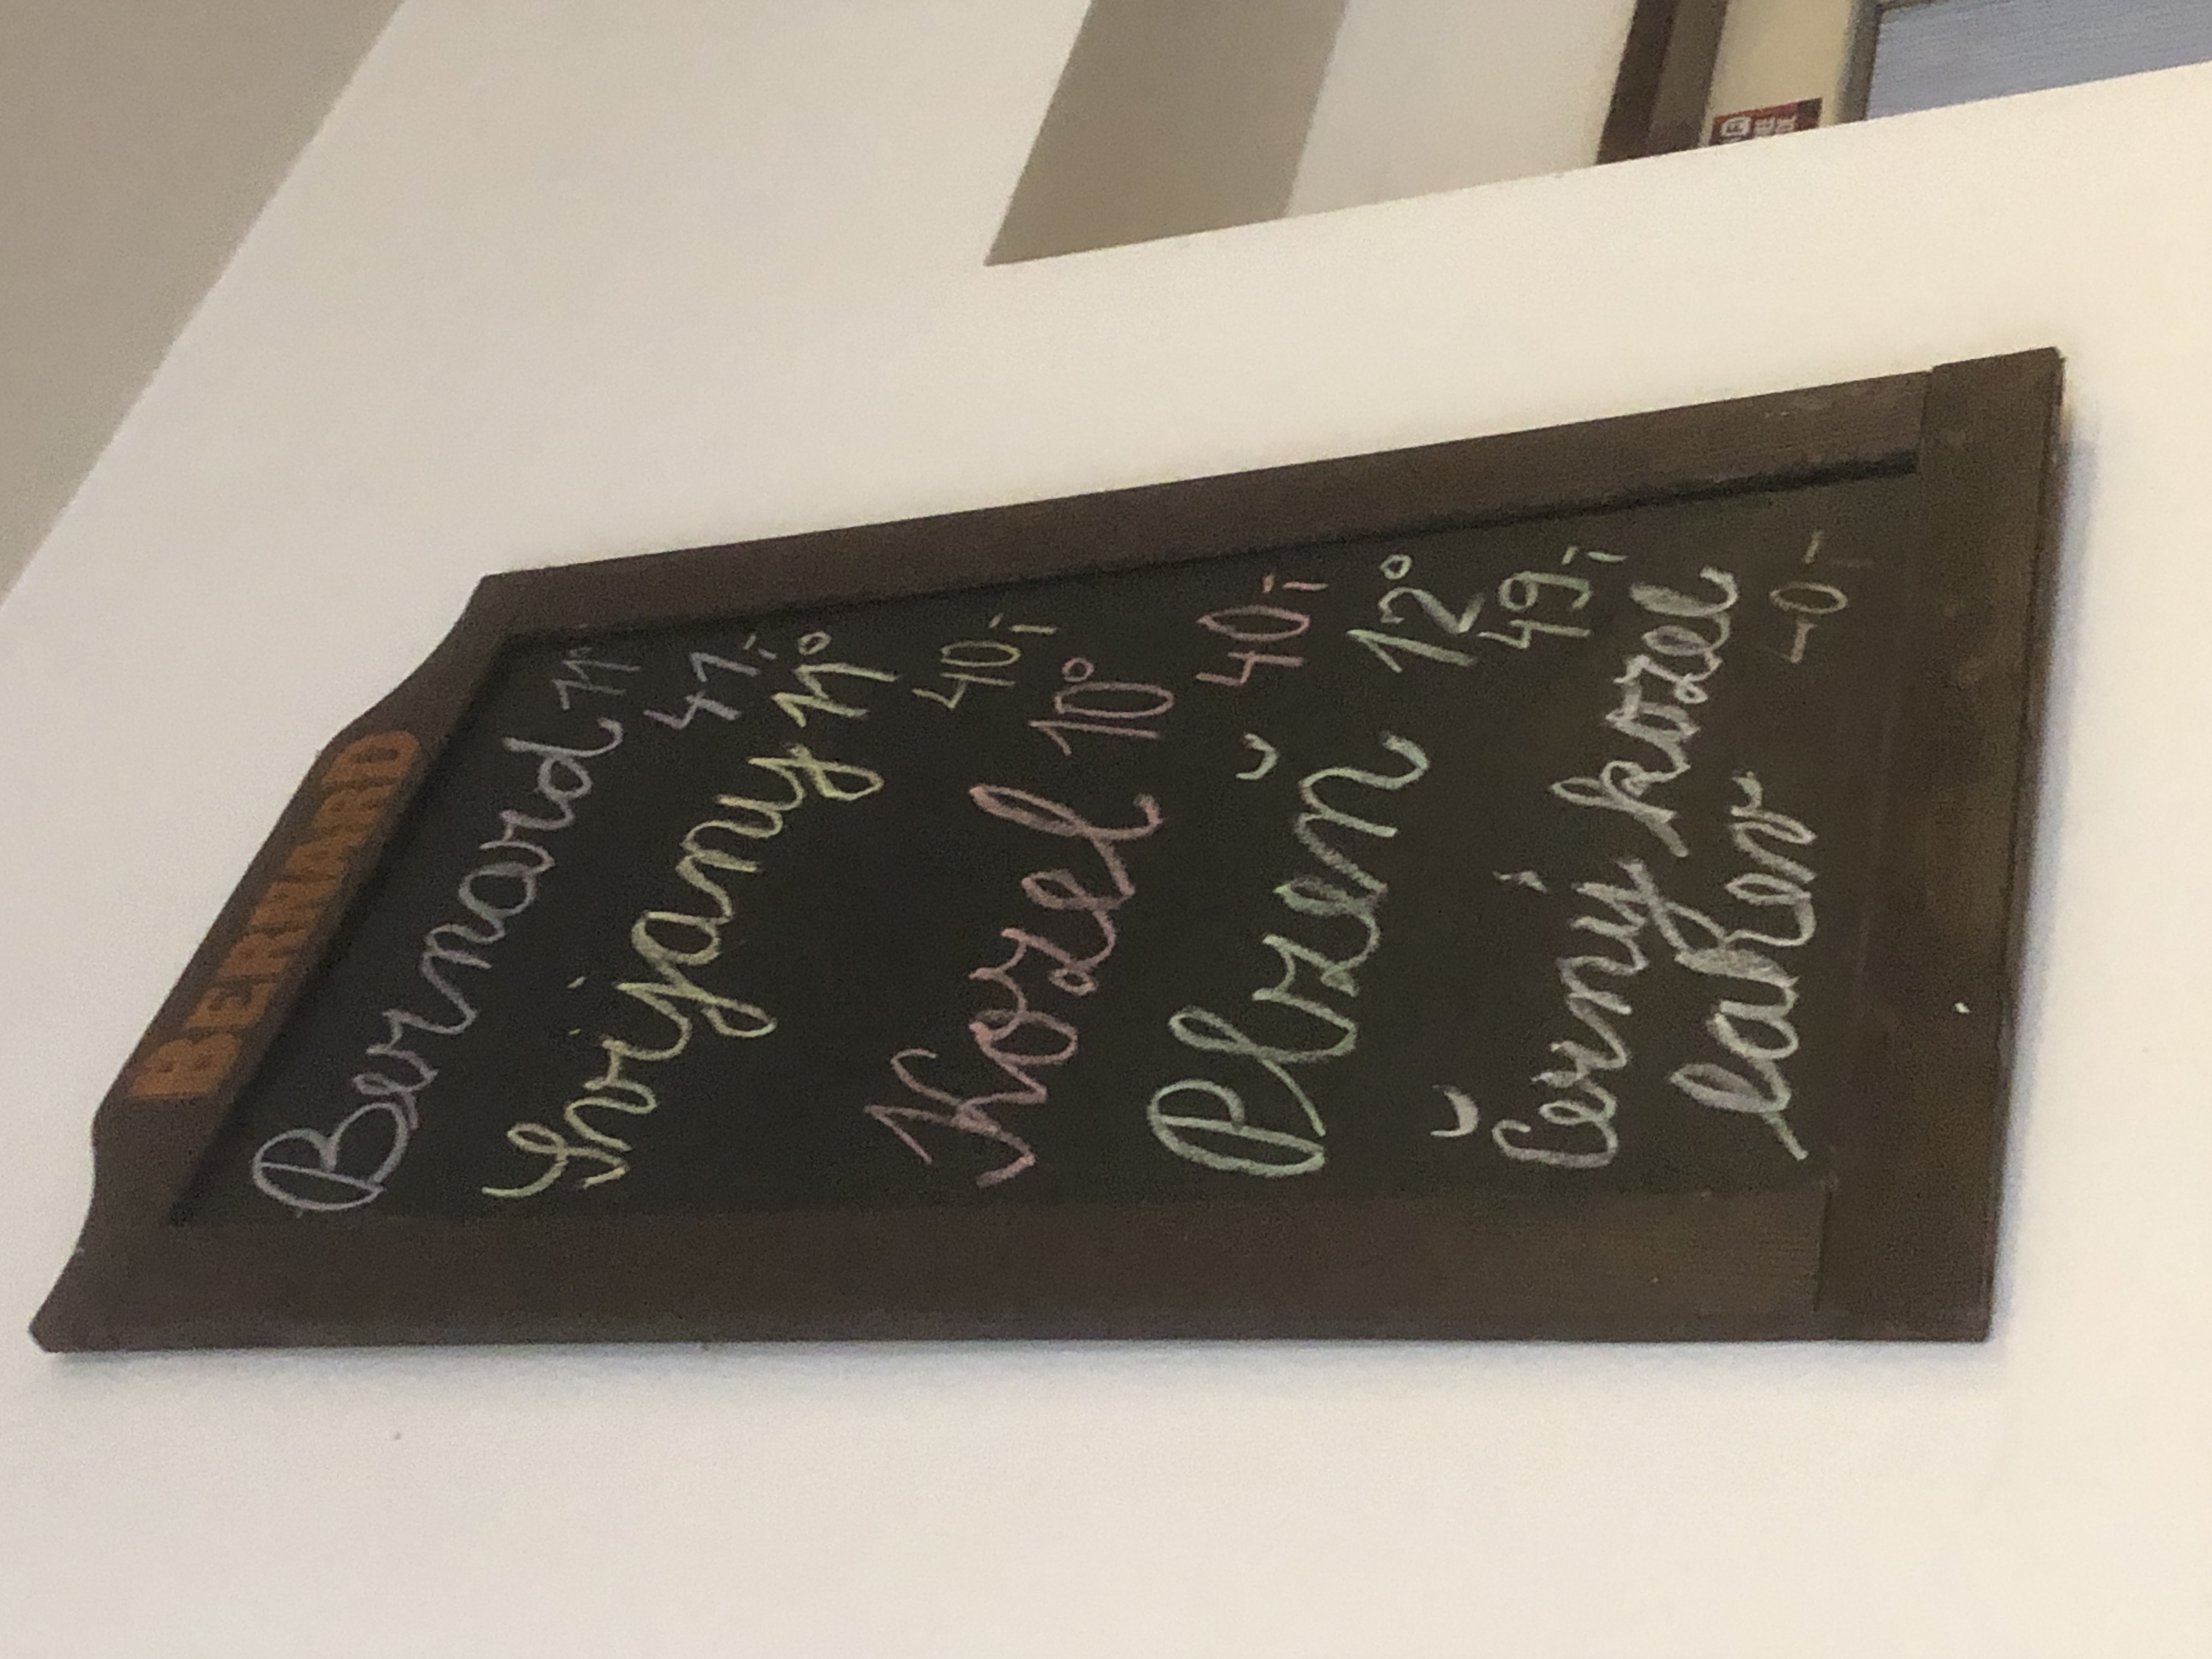 BERNARD
Bernard 11°
41,-
Svijany 11°
40,-
Kozel 10°
40,-
Plzeň 12°
49,-
Černý kozel
40,-